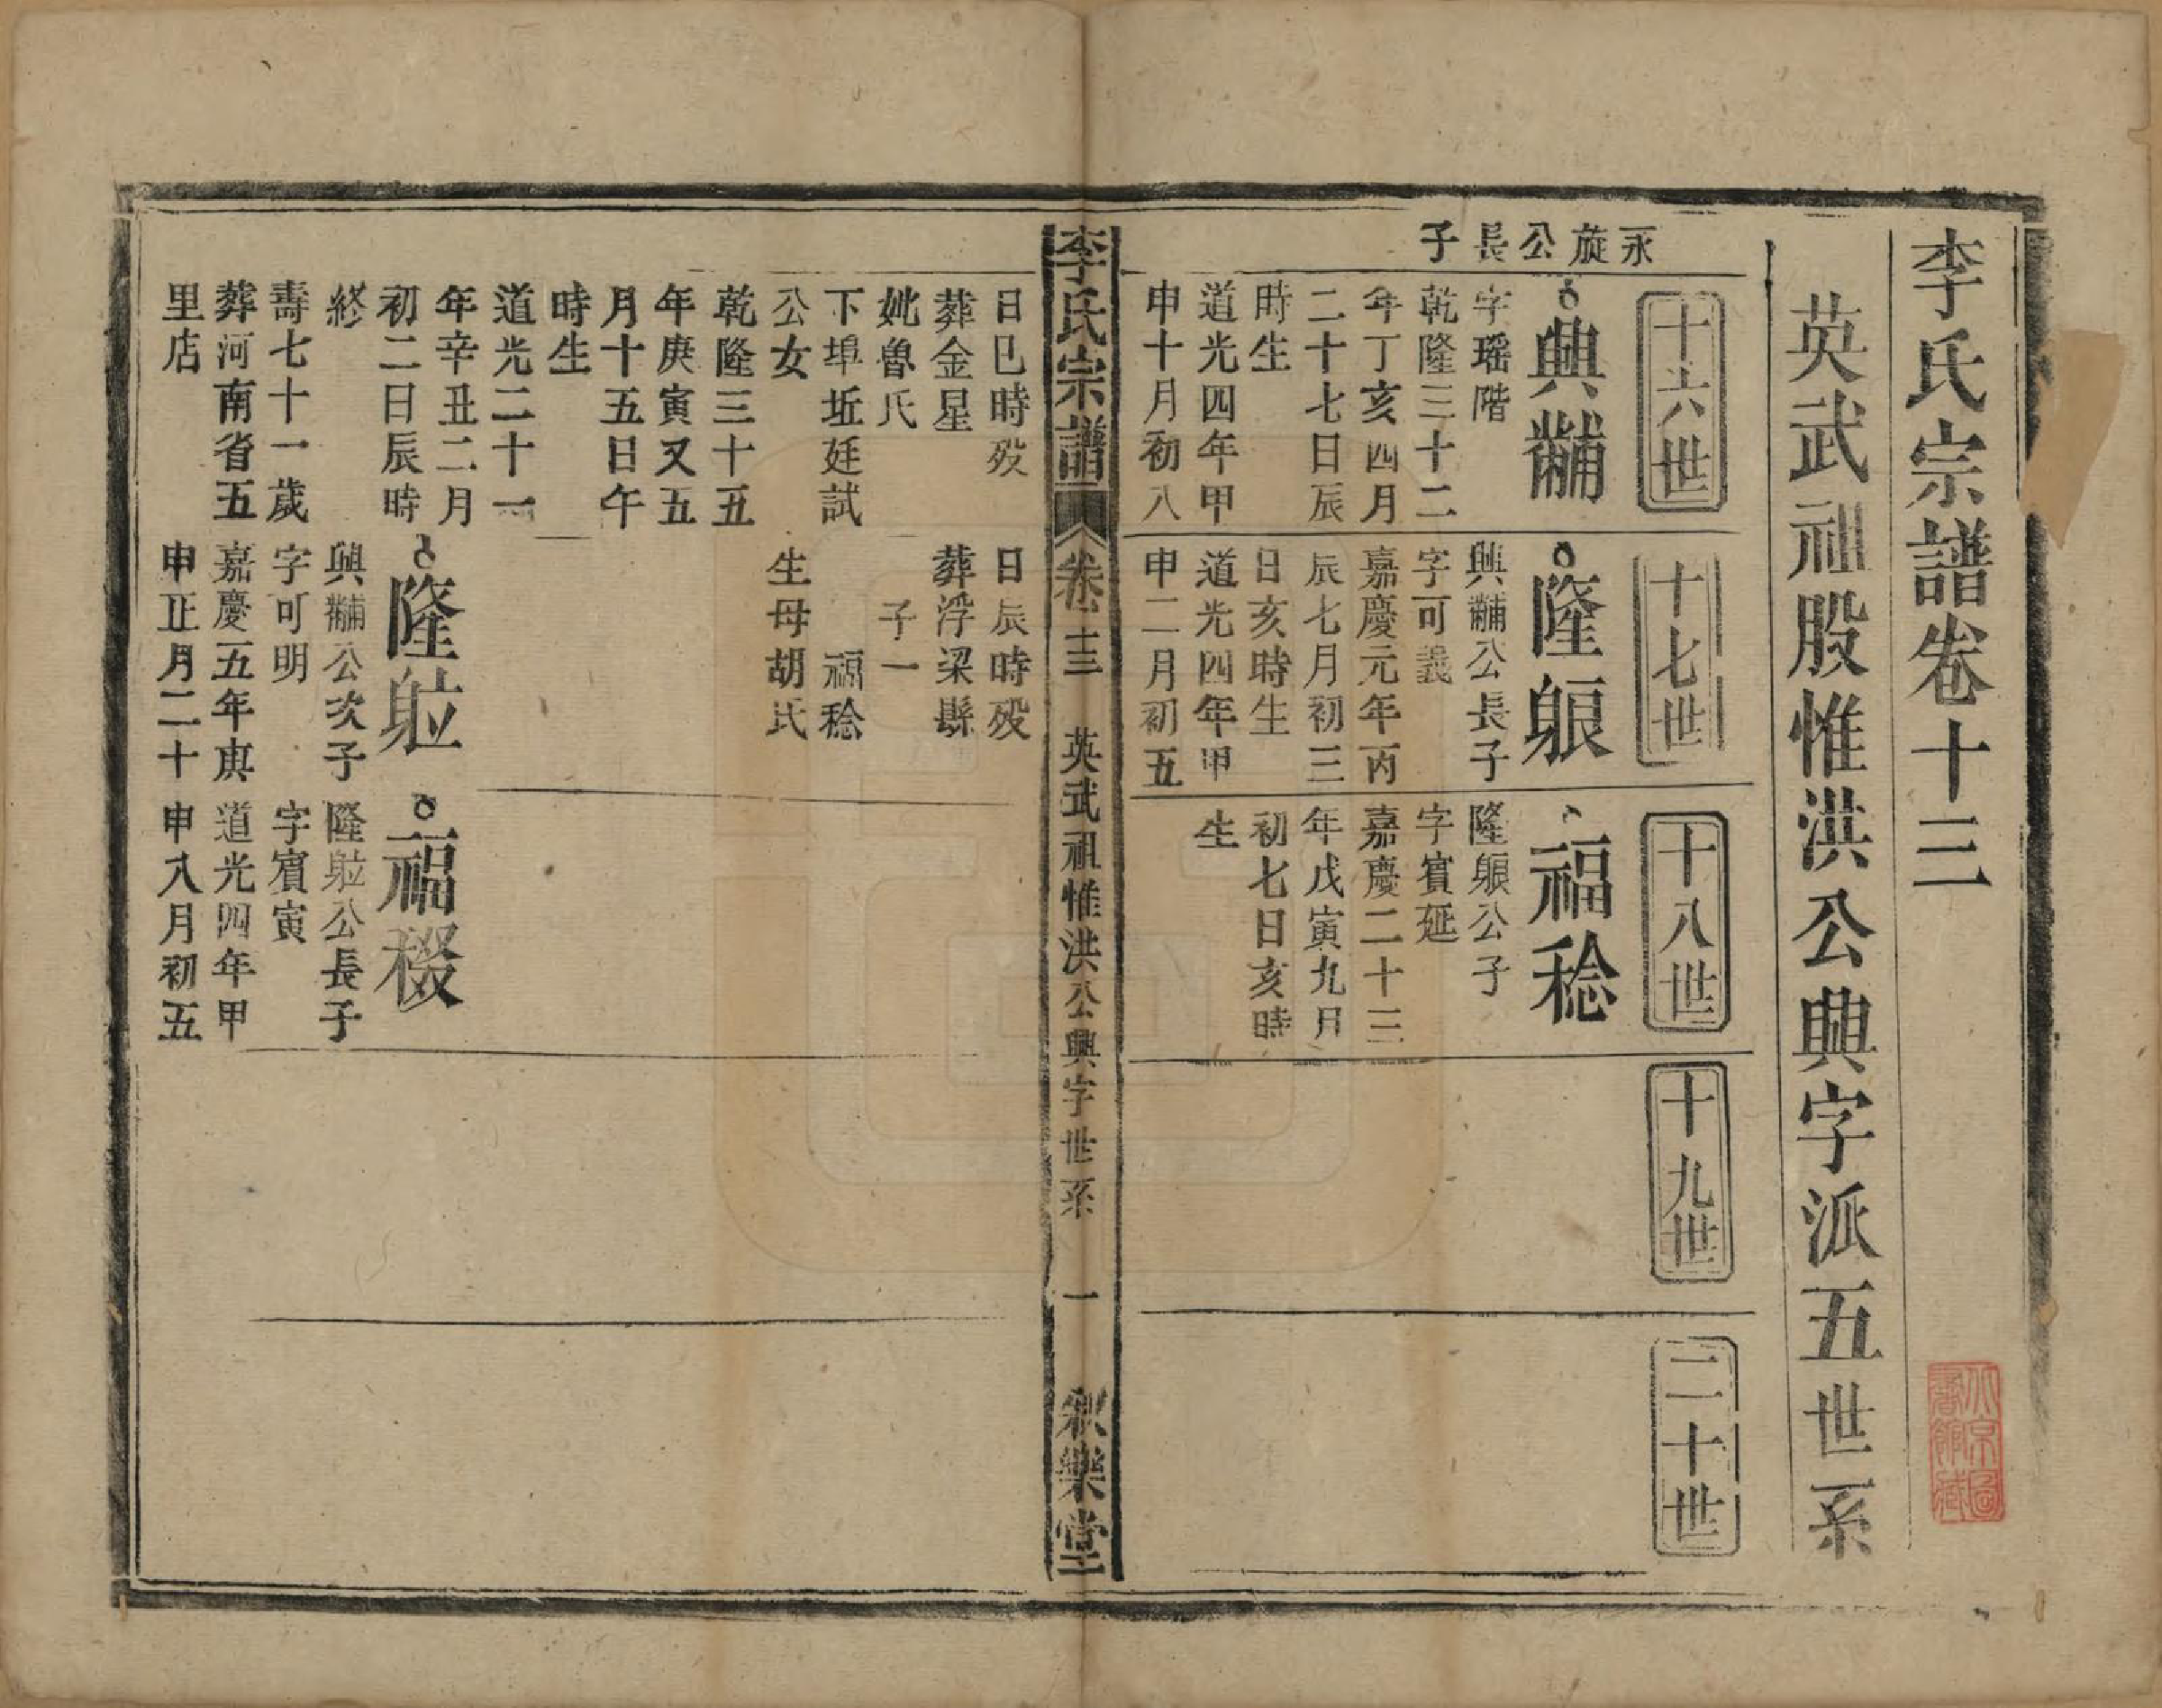 李氏宗譜卷十三
英武祖股惟洪公興字派五世系
十六世
十七世
十八世
十九世
二十世
永旋公長子
興黼
字瑶階
乾隆三十二
年丁亥四月
二十七日辰
時生
道光四年甲
申十月初八
隆䠶
興黼公長子
字可義
嘉慶元年丙
辰七月初三
日亥時生
道光四年甲
申二月初五
福稔
隆公子
字賓延
嘉慶二十三
年戊寅九月
初七日亥時
生
李氏宗譜
卷十三
英武祖惟洪公興字世系
一
敘樂堂
日巳時歿
葬金星
妣魯氏
下埠坵廷試
公女
乾隆三十五
年庚寅又五
月十五日午
時生
道光二十一
年辛丑二月
初二日辰時
終
壽七十一歲
葬河南省五
里店
日辰時歿
葬浮梁縣
子一
福稔
生母胡氏
隆
興黼公次子
字可明
嘉慶五年庚
申正月二十
福稯
隆公長子
字賓寅
道光四年甲
申八月初五